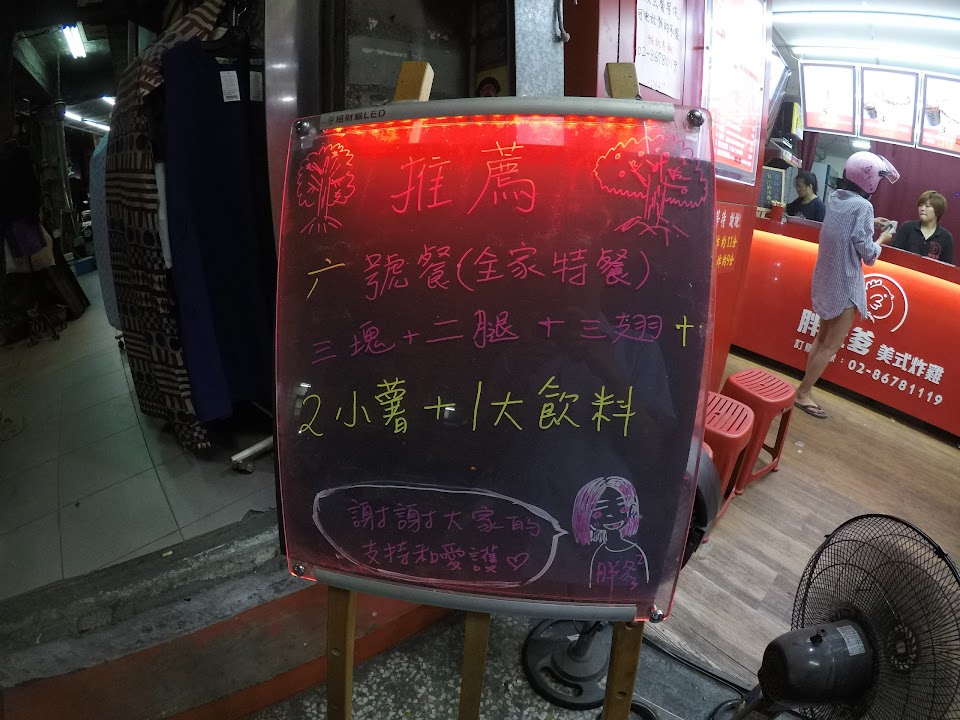 招財貓LED
推薦
六號餐(全家特餐)
三塊+二腿+三翅+
2小薯+1大飲料
謝謝大家的
支持和愛護♡
胖爹
02-86781119
爹 美式炸雞
02-86781119